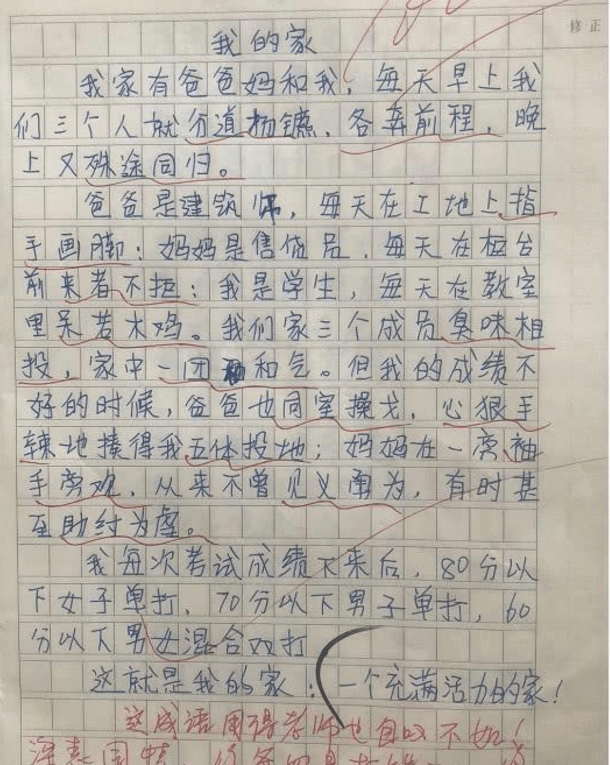 修正
我的家
我家有爸爸妈和我，每天早上我
们三个人就分道扬镳，各奔前程，晚
上又殊途同归。
爸爸是建筑师，每天在工地上指
手画脚；妈妈是售货员，每天在柜台
前来者不拒；我是学生，每天在教室
里呆若木鸡。我们家三个成员臭味相
投，家中一团和气。但我的成绩不
好的时候，爸爸也同室操戈，心狠手
辣地揍得我五体投地；妈妈在一旁袖
手旁观，从来不曾见义勇为，有时甚
至助纣为虐。
我每次考试成绩下来后，80分以
下女子单打，70分以下男子单打，60
分以下男女混合双打
这就是我的家：一个充满活力的家！
这成语用得老师也自叹不如！